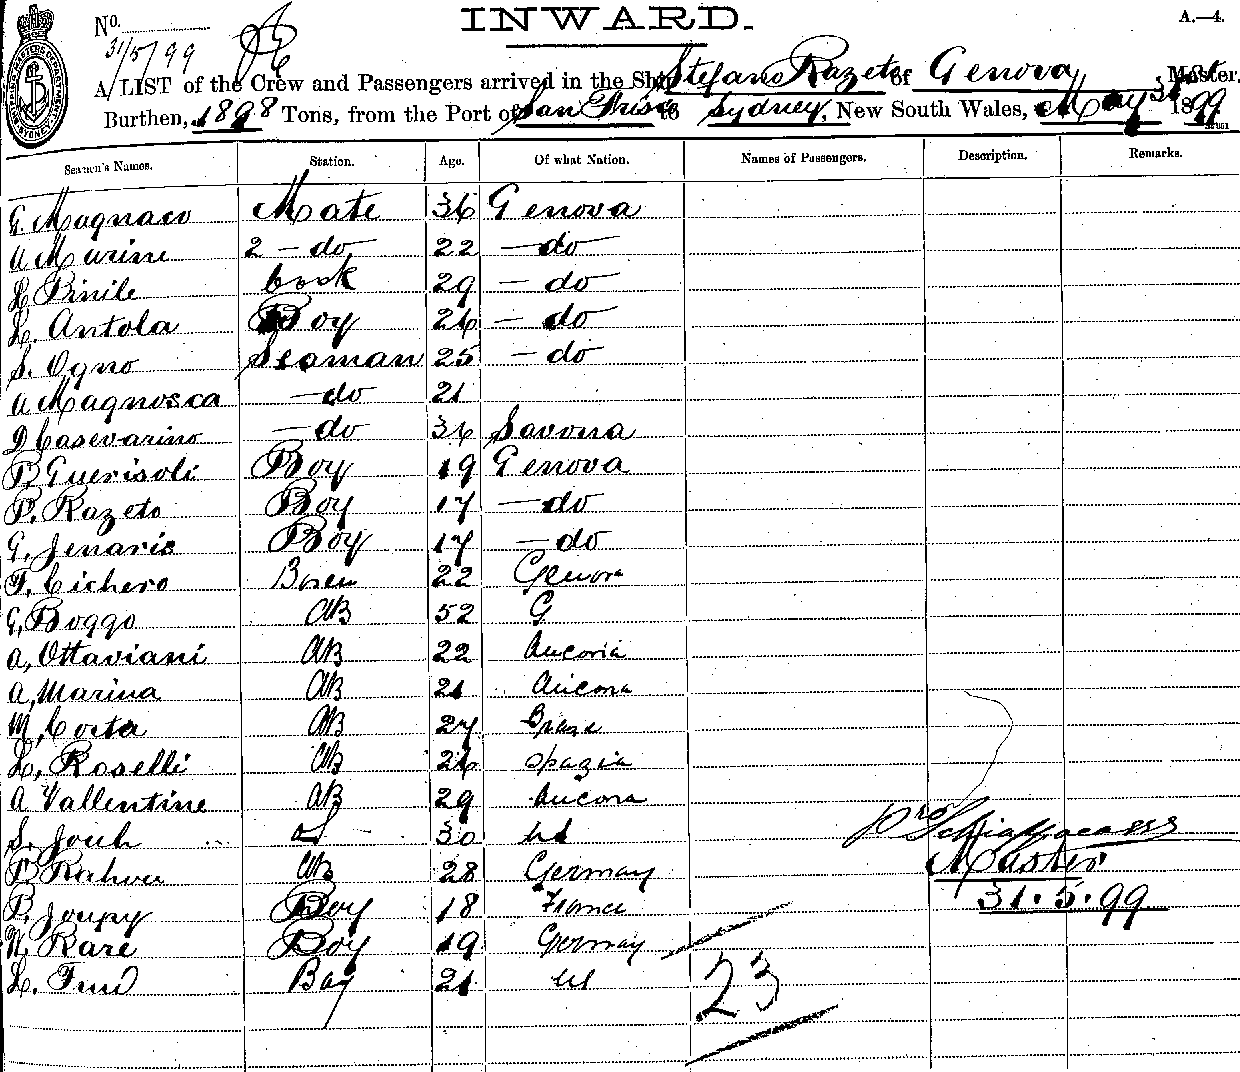 INWARD.
A.—4.
No.
31/5/99
A LIST of the Crew and Passengers arrived in the Ship Stefano Razeto of Genova Master,
Burthen, 1898 Tons, from the Port of San Frisco to Sydney, New South Wales, May 31st 1899
Seamen's Names. Station. Age. Of what Nation. Names of Passengers. Description. Remarks.
G. Magnaco Mate 36 Genova
A Murine 2 - do 22 - do
L Pinile Cook 29 - do
L. Antola Boy 26 - do
S. Ogno Seaman 25 - do
A Magnosca - do 21
D Casevarino - do 36 Savona
B Guerisoli Boy 19 Genova
P. Razeto Boy 17 - do
G. Jenaric Boy 17 - do
F. Cichero Bosen 22 Genova
G, Boggo AB 52 G
A, Ottaviani AB 22 Ancona
A, Marina AB 21 Ancona
M, Costa AB 27
L, Roselli AB 26 Spazia
A Vallentine AB 29 Ancona
S. 30
P AB 28 Germany
P. Joupy Boy 18 France
N. Rare Boy 19 Germany
L. Boy 21
pro Schiaffacasse
Master
31.5.99
23